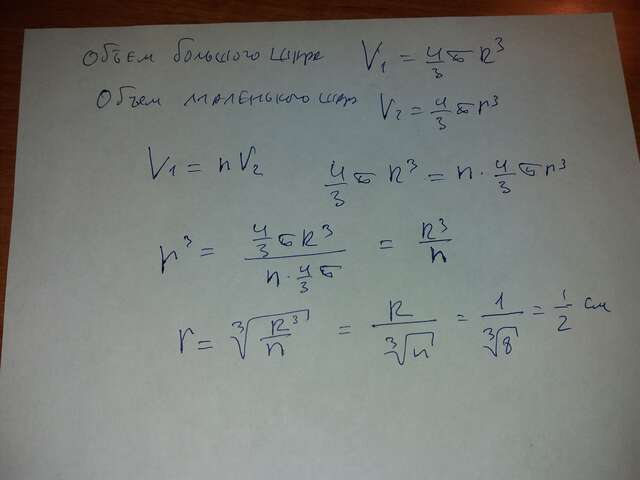 Объем большого шара V₁ = 4/3 π R³
Объем маленького шар V₂ = 4/3 π r³
V₁ = n V₂ 4/3 π R³ = n · 4/3 π r³
r³ = (4/3 π R³)/(n · 4/3 π) = R³/n
r = ∛(R³/n) = R/∛n = 1/∛8 = 1/2 см